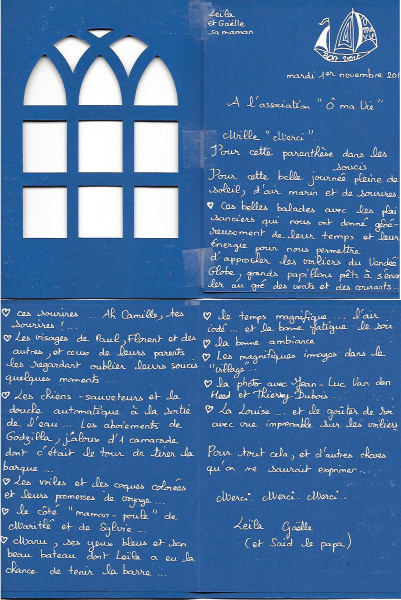 Leïla
et Gaëlle
sa maman
Ô MA VIE
mardi 1er novembre 201
A l'association "Ô ma Vie"
Mille "Merci"...
Pour cette parenthèse dans les
soucis
Pour cette belle journée pleine de
soleil, d'air marin et de sourires.
♥ Ces belles balades avec les plai
sanciers qui nous ont donné géné-
reusement de leur temps et leur
énergie pour nous permettre
d'approcher les voiliers du Vendée
Globe, grands papillons prêts à s'envo
ler au gré des vents et des courants..
♥ ces sourires ... Ah Camille, tes
sourires ! ...
♥ Les visages de Paul, Florent et des
autres, et ceux de leurs parents
les regardant oublier leurs soucis
quelques moments ...
♥ Les chiens-sauveteurs et la
douche automatique à la sortie
de l'eau ... Les aboiements de
Godzilla, jaloux d'1 camarade
dont c'était le tour de tirer la
barque ...
♥ Les voiles et les coques colorées
et leurs promesses de voyage ..
♥ le côté "maman-poule" de
Marithé et de Sylvie ...
♥ Manu, ses yeux bleus et son
beau bateau dont Leïla a eu la
chance de tenir la barre ...
♥ le temps magnifique .... l'air
iodé ... et la bonne fatigue le soir
♥ la bonne ambiance
♥ Les magnifiques images dans le
"village" ...
♥ la photo avec Jean-Luc Van den
Heed et Thierry Dubois
♥ La Louise ... et le goûter de roi
avec vue imprenable sur les voiliers
Pour tout cela, et d'autres choses
qu'on ne saurait exprimer ...
Merci. Merci. Merci...
Leïla Gaëlle
(et Saïd le papa)